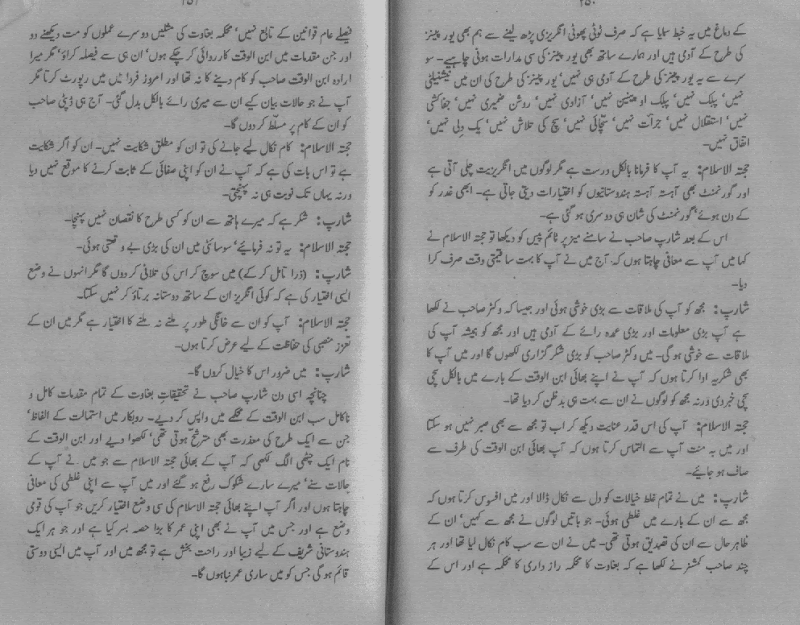 ۲۵۰
کے دماغ میں یہ خبط سمایا ہے کہ صرف ٹوٹی پھوٹی انگریزی پڑھ لینے سے ہم بھی یورپینز
کی طرح کے آدمی ہیں اور ہمارے ساتھ بھی یورپینز کی سی مدارات ہونی چاہیے۔ سو
سرے سے یہ یورپینز کی طرح کے آدمی ہی نہیں، یورپینز کی طرح کی ان میں نیشنیلٹی
نہیں، پبلک نہیں، پبلک اوپینین نہیں، آزادی نہیں، روشن ضمیری نہیں، جفاکشی
نہیں، استقلال نہیں، جرأت نہیں، سچائی نہیں، سچ کی تلاش نہیں، یک دلی نہیں،
اتفاق نہیں۔
حجتہ الاسلام: یہ آپ کا فرمانا بالکل درست ہے مگر لوگوں میں انگریزیت چلی آتی ہے
اور گورنمنٹ بھی آہستہ آہستہ ہندوستانیوں کو اختیارات دیتی جاتی ہے۔ ابھی غدر کو
کے دن ہوئے، گورنمنٹ کی شان ہی دوسری ہو گئی ہے۔
اس کے بعد شارپ صاحب نے سامنے میز پر ٹائم پیس کو دیکھا تو حجتہ الاسلام نے
کہا میں آپ سے معافی چاہتا ہوں کہ آج میں نے آپ کا بہت سا قیمتی وقت صرف کرا
دیا۔
شارپ: مجھ کو آپ کی ملاقات سے بڑی خوشی ہوئی اور جیسا کہ وکٹر صاحب نے لکھا
ہے آپ بڑی معلومات اور بڑی عمدہ رائے کے آدمی ہیں اور مجھ کو ہمیشہ آپ کی
ملاقات سے خوشی ہو گی۔ میں وکٹر صاحب کو بڑی شکر گزاری لکھوں گا اور میں آپ کا
بھی شکریہ ادا کرتا ہوں کہ آپ نے اپنے بھائی ابن الوقت کے بارے میں بالکل سچی
سچی خبر دی ورنہ مجھ کو لوگوں نے ان سے بہت ہی بدظن کر دیا تھا۔
حجتہ الاسلام: آپ کی اس قدر عنایت دیکھ کر اب تو مجھ سے بھی صبر نہیں ہو سکتا
اور میں بہ منت آپ سے التماس کرتا ہوں کہ آپ بھائی ابن الوقت کی طرف سے
صاف ہو جائیے۔
شارپ: میں نے تمام غلط خیالات کو دل سے نکال ڈالا اور میں افسوس کرتا ہوں کہ
مجھ سے ان کے بارے میں غلطی ہوئی۔ جو باتیں لوگوں نے مجھ سے کہیں، ان کے
ظاہر حال سے ان کی تصدیق ہوتی تھی۔ میں نے ان سے سب کام نکال لیا تھا اور ہر
چند صاحب کمشنر نے لکھا ہے کہ بغاوت کا محکمہ راز داری کا محکمہ ہے اور اس کے
۲۵۱
فیصلے عام قوانین کے تابع نہیں، محکمہ بغاوت کی مثلیں دوسرے عملوں کو مت دیکھنے دو
اور جن مقدمات میں ابن الوقت کارروائی کر چکے ہوں، ان ہی سے فیصلہ کراؤ، مگر میرا
ارادہ ابن الوقت صاحب کو کام دینے کا نہ تھا اور امروز فردا میں میں رپورٹ کرتا مگر
آپ نے جو حالات بیان کیے ان سے میری رائے بالکل بدل گئی۔ آج ہی ڈپٹی صاحب
کو ان کے کام پر مسلط کر دوں گا۔
حجتہ الاسلام: کام نکال لیے جانے کی تو ان کو مطلق شکایت نہیں۔ ان کو اگر شکایت
ہے تو اس بات کی ہے کہ آپ نے ان کو اپنی صفائی کے ثابت کرنے کا موقع نہیں دیا
ورنہ یہاں تک نوبت ہی نہ پہنچتی۔
شارپ: شکر ہے کہ میرے ہاتھ سے ان کو کسی طرح کا نقصان نہیں پہنچا۔
حجتہ الاسلام: یہ تو نہ فرمائیے، سوسائٹی میں ان کی بڑی بے وقعتی ہوئی۔
شارپ: (ذرا تامل کر کے) میں سوچ کر اس کی تلافی کر دوں گا مگر انہوں نے وضع
ایسی اختیار کی ہے کہ کوئی انگریز ان کے ساتھ دوستانہ برتاؤ کر نہیں سکتا۔
حجتہ الاسلام: آپ کو ان سے خانگی طور پر ملنے نہ ملنے کا اختیار ہے مگر میں ان کے
تعزز منصبی کی حفاظت کے لیے عرض کرتا ہوں۔
شارپ: میں ضرور اس کا خیال کروں گا۔
چنانچہ اسی دن شارپ صاحب نے تحقیقات بغاوت کے تمام مقدمات کامل و
ناکامل سب ابن الوقت کے محکمے میں واپس کر دیے۔ روبکار میں استمالت کے الفاظ،
جن سے ایک طرح کی معذرت بھی مترشح ہوتی تھی، لکھوا دیے اور ابن الوقت کے
نام ایک چٹھی الگ لکھی کہ آپ کے بھائی حجتہ الاسلام سے جو میں نے آپ کے
حالات سنے، میرے سارے شکوک رفع ہو گئے اور میں آپ سے اپنی غلطی کی معافی
چاہتا ہوں اور اگر آپ اپنے بھائی حجتہ الاسلام کی سی وضع اختیار کریں جو آپ کی قومی
وضع ہے اور جس میں آپ نے بھی اپنی عمر کا بڑا حصہ بسر کیا ہے اور جو ہر ایک
ہندوستانی شریف کے لیے زیبا اور راحت بخش ہے تو مجھ میں اور آپ میں ایسی دوستی
قائم ہو گی جس کو میں ساری عمر نباہوں گا۔